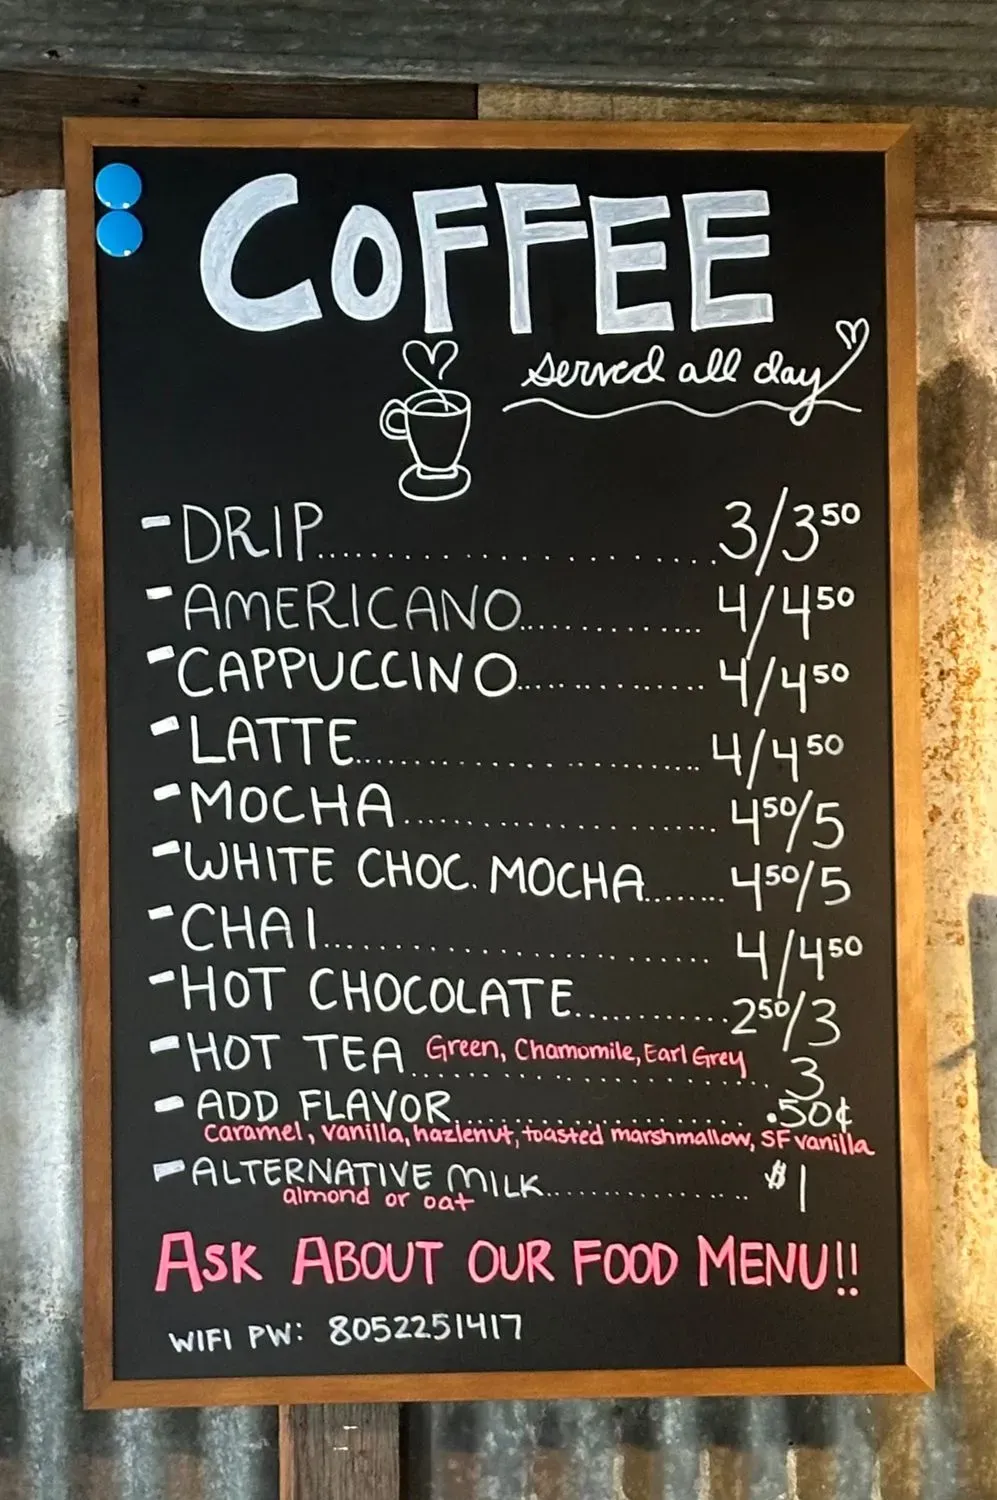 COFFEE
served all day
- DRIP.......................... 3/3⁵⁰
- AMERICANO............... 4/4⁵⁰
- CAPPUCCINO............... 4/4⁵⁰
- LATTE.......................... 4/4⁵⁰
- MOCHA....................... 4⁵⁰/5
- WHITE CHOC. MOCHA........ 4⁵⁰/5
- CHAI.......................... 4/4⁵⁰
- HOT CHOCOLATE............ 2⁵⁰/3
- HOT TEA Green, Chamomile, Earl Grey ........ 3
- ADD FLAVOR.................... .50¢
caramel, vanilla, hazlenut, toasted marshmallow, SF vanilla
- ALTERNATIVE MILK............... $1
almond or oat
ASK ABOUT OUR FOOD MENU!!
WIFI PW: 8052251417